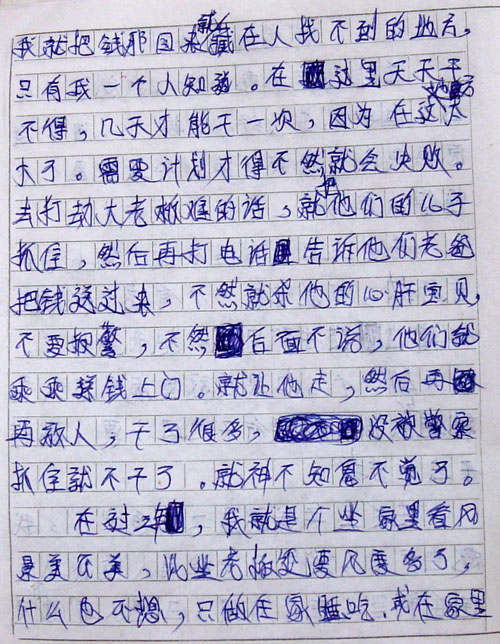 我就把钱那回来就藏在人找不到的地方,
只有我一个人知道。在这里天天干
不得,几天才能干一次,因为在这地方太
大了。需要计划才得不然就会失败。
去打劫大老板难的话,就把他们的儿子
抓住,然后再打电话告诉他们老爸
把钱送过来,不然就杀他的心肝宝贝,
不要报警,不然后面不话,他们就
乖乖拿钱上门。就让他走,然后再
再放人,干了很多,没被警察
抓住就不干了。就神不知鬼不觉了。
在过,我就是个坐家里看风
景美不美,那些老板处要风度多了,
什么也不想,只做在家睡吃,或在家里